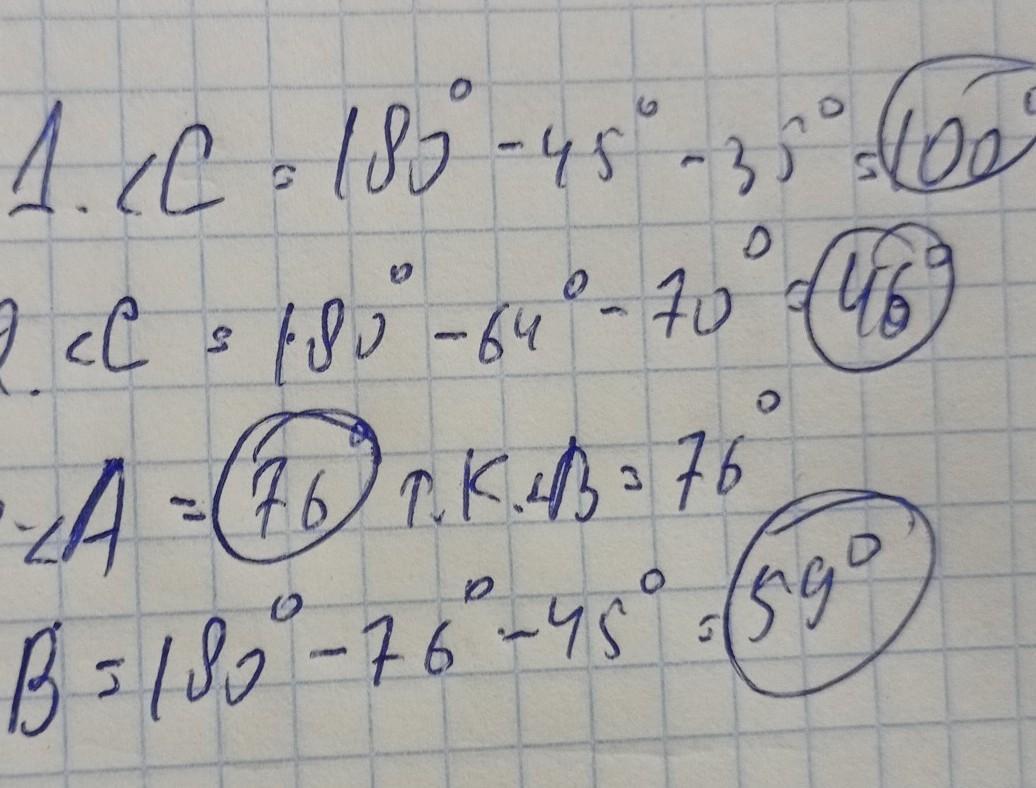 1. <C = 180° - 45° - 35° = 100°
2. <C = 180° - 64° - 70° = 46°
<A = 76° т.к. <B = 76°
B = 180° - 76° - 45° = 59°